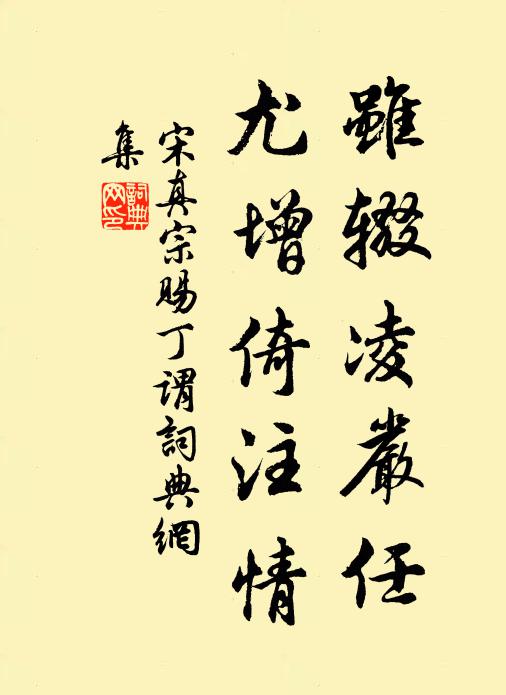 雖辍凌嚴任
尤增倚注情
宋真宗賜丁謂詞典網
集
詞典网印